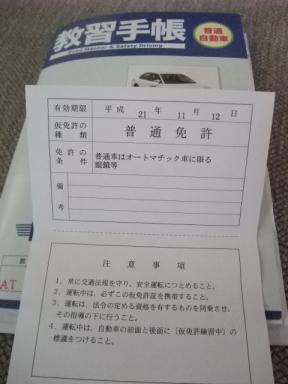 教習手帳
Good Manner & Safety Driving
普通
自動車
有効期限 平成 21 年 11 月 12 日
仮免許の
種類 普通免許
免許の
条件 普通車はオートマチック車に限る
眼鏡等
備
考
注意事項
1．常に交通法規を守り、安全運転につとめること。
2．運転中は、必ずこの仮免許証を携帯すること。
3．運転は、法令の定める資格を有するものを同乗させ、
その指導の下に行うこと。
4．運転中は、自動車の前面と後面に〔仮免許練習中〕の
標識をつけること。
AT